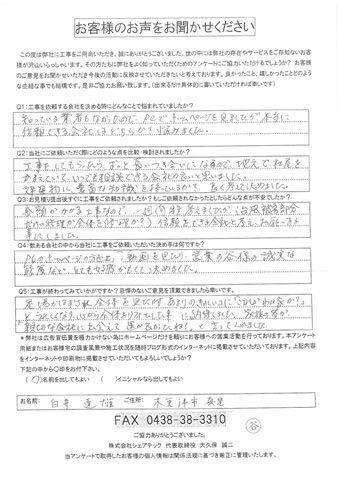 お客様のお声をお聞かせください
この度は弊社に工事をご用命いただき、誠にありがとうございました。世の中には弊社の存在やサービスをご存知ないお客
様が沢山いらっしゃいます。その方たちに弊社をよく知っていただくためのアンケートにご協力いただけるでしょうか？ お客
様のご意見をお聞かせいただき今後の活動に反映させていただきたいと考えております。良かったこと、嬉しかったことどのよ
うな些細な事でも結構です。是非ご協力お願い致します。(出来るだけ具体的に書いていただければ幸いです)
Q1：工事を依頼する会社を決める時にどんなことで悩まれていましたか？
知っている業者もなかったので、PCでホームページを見ましたが本当に
信頼できる会社はどちらか？悩みました。
Q2：当社にご依頼いただく際にどのような点を比較・検討されましたか？
工事をしてもらったら、ずっと長いつき合いになるので、地元で社屋を
かまえていて、いつでも相談できる会社が良いと思いました。
建築物に豊富な知識をお持ちでいるか？ 良く考え決めました。
Q3：お見積り提出後すぐにご依頼されましたか？もしご依頼されなかったとしたらどんな点が不安でしたか？
金額がかかる工事なので、一週間程考えましたが(台風被害部分
だけの修理か全体を修理か？) 信頼できる会社と考え、お願いする
事にしました。
Q4：数ある会社の中から当社に工事をご依頼いただいた決め手は何ですか？
PCのホームページの施工例、動画を見たり、営業の谷様の誠実な
態度など、とても好感がもてて決めました。
Q5：工事が終わってみていかがですか？忌憚のないご意見を頂戴できましたら幸いです。
足場がはずされ、全体を見た時 あまりのキレイさに「これがわが家か？」
親切な会社に出会えて運が良かったね！」と言ってくれました。
★弊社は広告宣伝費を極力かけない為にホームページだけを頼りにお客様への営業活動を行っております。本アンケート
用紙またはお客様宅の調査風景や施工状況を随時ブログ形式のインターネットに掲載させていただいております。上記内容
をインターネットや印刷物に掲載させていただいてもよろしいでしょうか？
下記の中から〇印をお付下さい。
( 〇 )名前を出してもよい ( )イニシャルなら出してもよい
お名前： 白井 達雄 ご住所： 木更津市
FAX 0438-38-3310
谷
ご協力ありがとうございました。
株式会社シェアテック 代表取締役 大久保 誠二
当アンケートで取得したお客様の個人情報は関係法規に基づき厳正に管理いたします。